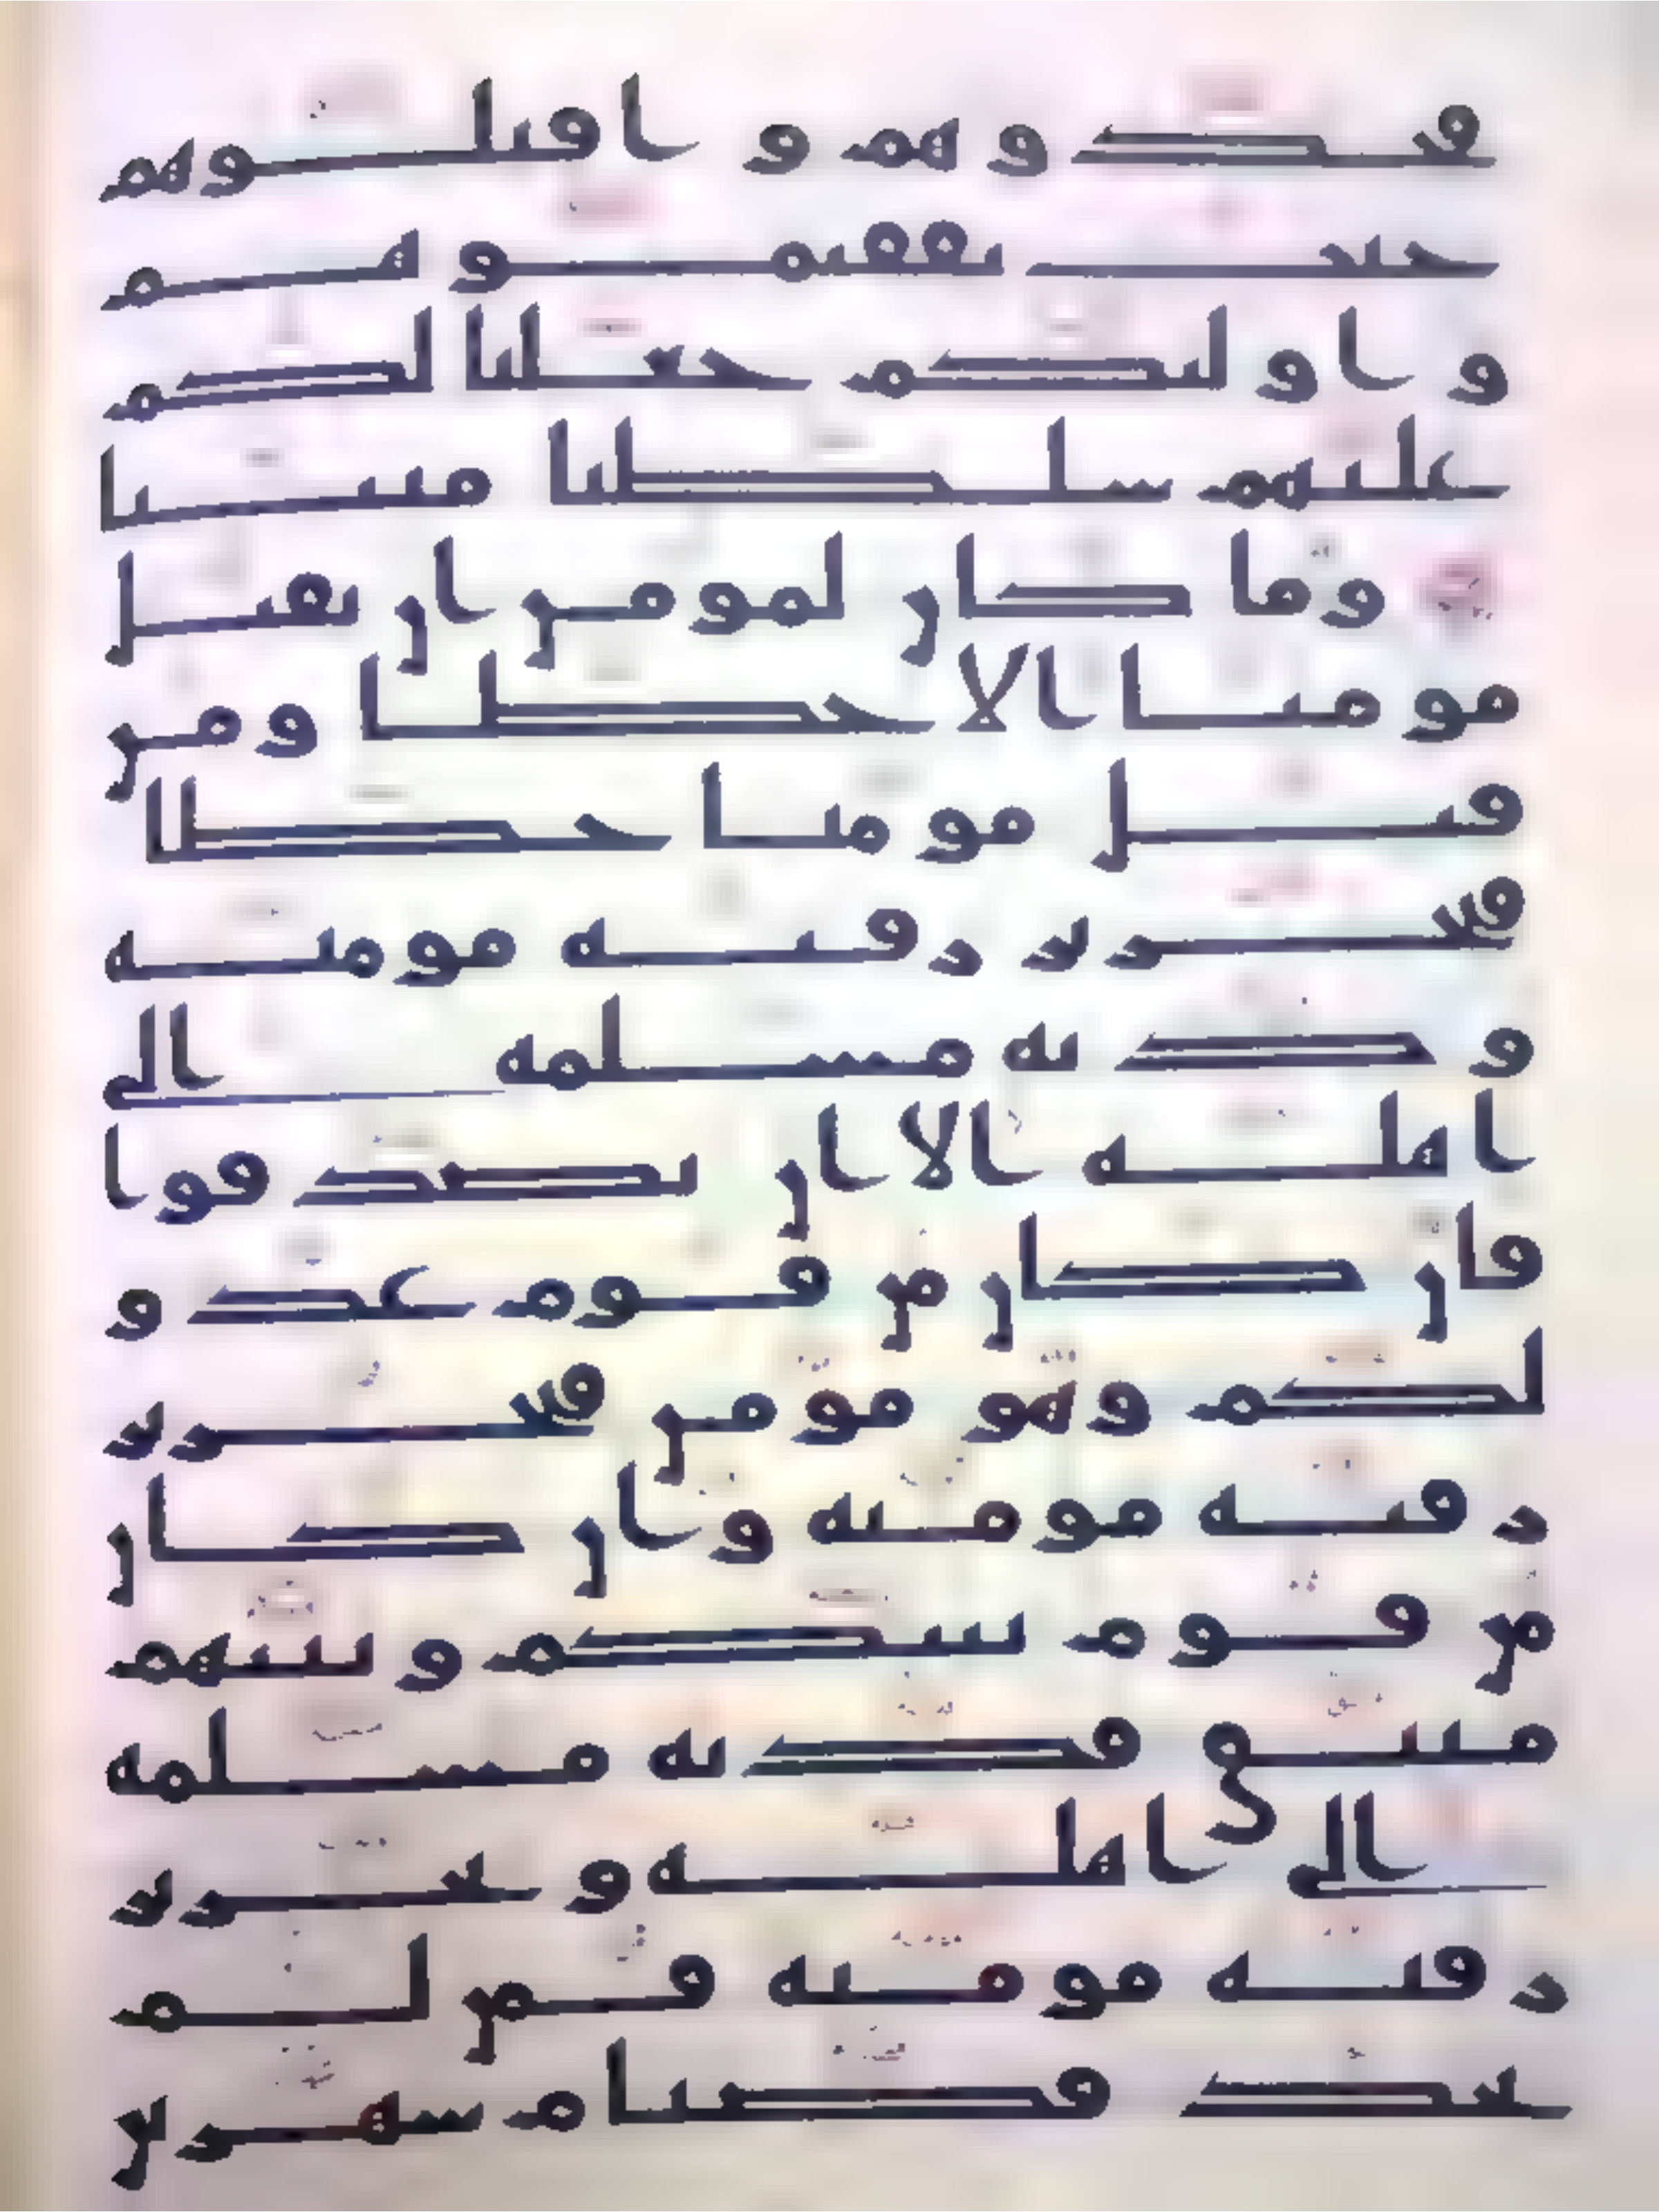 فخذوهم واقتلوهم
حيث ثقفتموهم
واولئكم جعلنا لكم
عليهم سلطنا مبينا
وما كان لمومن ان يقتل
مومنا الا خطا ومن
قتل مومنا خطا
فتحرير رقبه مومنه
ودية مسلمه الى
اهله الا ان يصدقوا
فان كان من قوم عدو
لكم وهو مومن فتحرير
رقبه مومنه وان كان
من قوم بينكم وبينهم
ميثق فديه مسلمه
الى اهله وتحرير
رقبه مومنه فمن لم
يجد فصيام شهرين